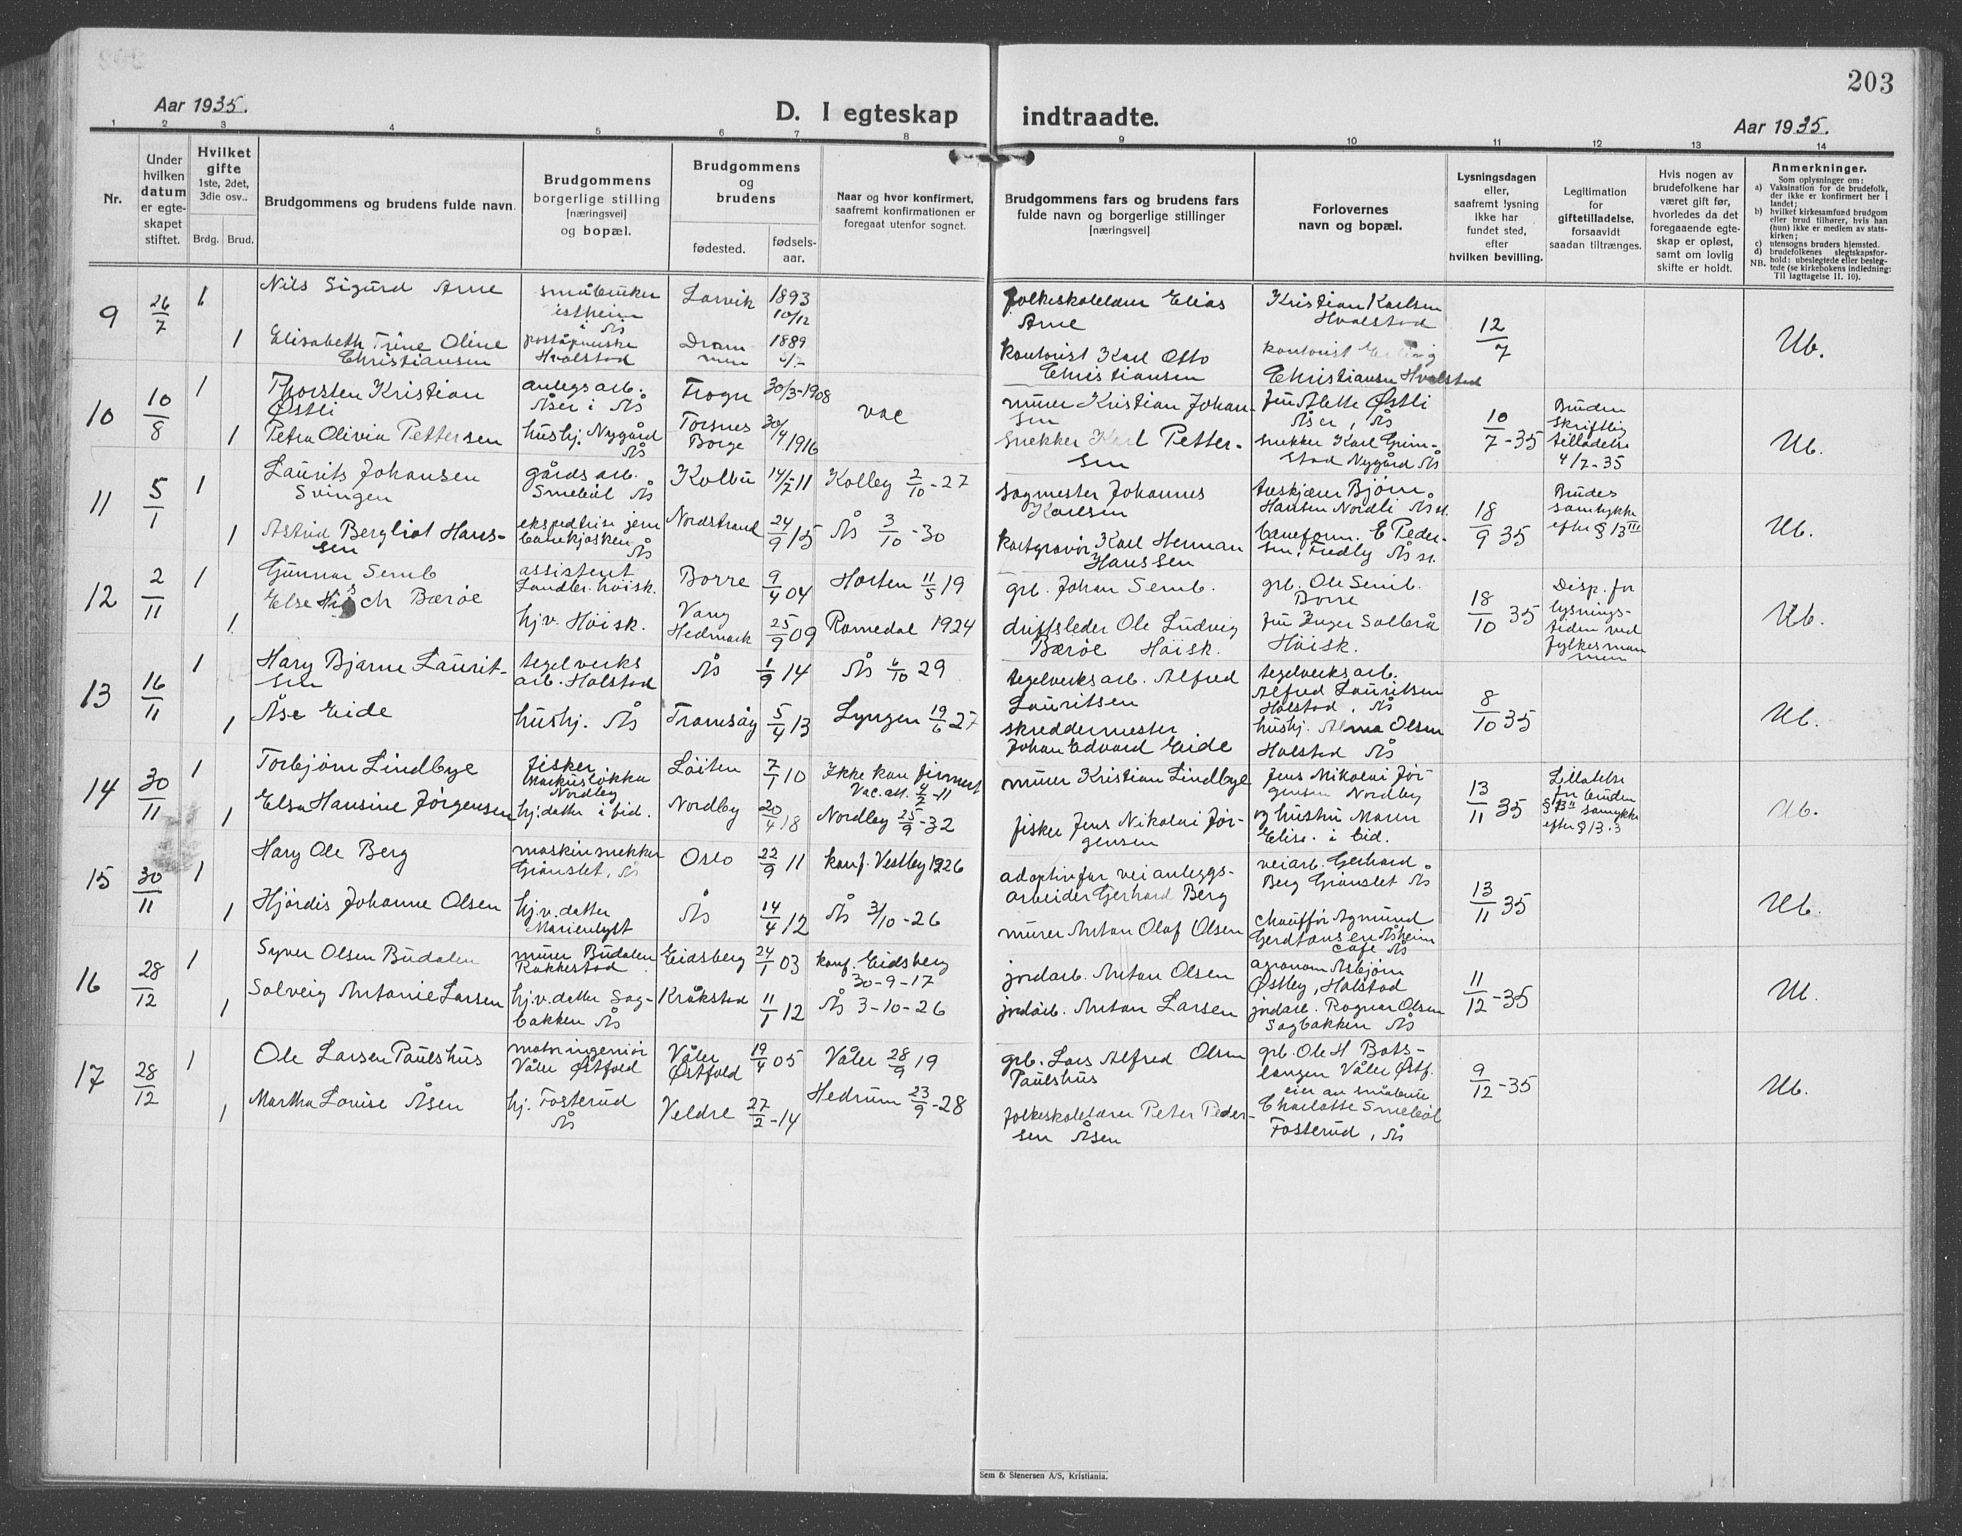 203
Aar 1935.
D. I egteskap indtraadte.
Aar 1935.
1 2 3 4 5 6 7 8 9 10 11 12 13 14
Nr.
Under hvilken datum er egteskapet stiftet.
Hvilket gifte 1ste, 2det, 3die osv..
Brdg. Brud.
Brudgommens og brudens fulde navn.
Brudgommens borgerlige stilling [næringsvei] og bopæl.
Brudgommens og brudens
fødested.
fødselsaar.
Naar og hvor konfirmert, saafremt konfirmationen er foregaat utenfor sognet.
Brudgommens fars og brudens fars fulde navn og borgerlige stillinger [næringsvei]
Forlovernes navn og bopæl.
Lysningsdagen eller, saafremt lysning ikke har fundet sted, efter hvilken bevilling.
Legitimation for giftetilladelse, forsaavidt saadan tiltrænges.
Hvis nogen av brudefolkene har været gift før, hvorledes da det foregaaende egteskap er opløst, samt om lovlig skifte er holdt.
Anmerkninger.
Som oplysninger om:
a) Vaksination for de brudefolk, der ikke er konfirmert her i landet;
b) hvilket kirkesamfund brudgom eller brud tilhører, hvis han (hun) ikke er medlem av statskirken;
c) utensogns bruders hjemsted.
d) brudefolkenes slegtskapsforhold: ubeslegtede eller beslegtede (se kirkebokens indledning: Til Iagttagelse II. 10).
NB.
9 26/7 1 Nils Sigurd Arne småbruker i Ås Larvik 1893 10/12 folkeskolelærer Elias Arne Kristian Karlsen Hvalstad 12/7 Ub.
1 Elisabeth Trine Oline Christiansen poståpnerske Hvalstad Drammen 1889 kontorist Karl Otto Christiansen kontorist Erling Christiansen Hvalstad
10 10/8 1 Thorsten Kristian Østli anlegsarb. Åser i Ås Trogn 30/3-1908 vac murer Kristian Johansen fru Alette Østli Åser, Ås 10/7-35 Bruden skriftlig tilladelse 4/7-35 Ub.
1 Petra Olivia Pettersen hushj. Nygård Ås Torsnes Borge 30/4 1916 snekker Karl Pettersen snekker Karl Grimstad Nygård Ås
11 5/1 1 Laurits Johansen Svingen gårdsarb. Smebøl Ås Kolbu 14/7 11 Kolbu 2/10-27 sagmester Johannes Karlsen Bjørn Hansen Nordli Ås st. 18/9 35 Brudes samtykke efter § 13 III Ub.
1 Astrid Bergliot Hanssen ekspeditrise jernbanekjosken Ås Nordstrand 24/9 15 Ås 3/10-30 kartgravør Karl Herman Hanssen baneform. E Pedersen, Fredly Ås st.
12 2/11 1 Gunnar Semb assistent Landbr. høisk. Borre 9/4 04 Horten 11/5 19 grb. Johan Semb. grb. Ole Semb. Borre 18/10 35 Disp. for lysningstiden ved fylkesmannen Ub.
1 Else Hirsch Bærøe hj.v. Høisk. Vang Hedmark 25/9 09 Romedal 1924 driftsleder Ole Ludvig Bærøe Høisk. fru Inger Solbrå Høisk.
13 16/11 1 Hary Bjarne Lauritsen tegelverksarb. Holstad Ås 1/9 14 Ås 6/10 29 tegelverksarb. Alfred Lauritsen tegelverksarb. Alfred Lauritsen Holstad, Ås 8/10 35 Ub.
1 Åse Eide hushj. Ås Tromsøy 5/4 13 Lyngen 19/6 27 skreddermester Johan Edvard Eide hushj. Alma Olsen Holstad Ås
14 30/11 1 Torbjørn Lindbye fisker Markusløkka Nordby Løiten 7/1 10 Ikke konfirmert Vac. att. 4/2-11 murer Kristian Lindbye Jens Nikolai Jørgensen Nordby 13/11 35 Tillatelse for bruden § 3 II samtykke efter § 13.3 Ub.
1 Elsa Hansine Jørgensen hj.datter i bid. Nordby 20/4 18 Nordby 25/9-32 fisker Jens Nikolai Jørgensen og hustru Maren Elise. i bid.
15 30/11 1 Hary Ole Berg maskinsnekker Grønslet, Ås Oslo 22/9 11 konf. Vestby 1926 adoptivfar veianleggsarbeider Gerhard Berg veiarb. Gerhard Berg Grønslet Ås 13/11 35 Ub.
1 Hjørdis Johanne Olsen hj.v. datter Marienlyst Ås 14/4 12 Ås 3/10-26 murer Anton Olaf Olsen chauffør Agmund Gerdtansen Åsheim Café Ås
16 28/12 1 Syver Olsen Budalen murer Budalen Rakkestad Eidsberg 24/1 03 konf. Eidsberg 30-9-17 jordarb. Anton Olsen agronom Asbjørn Østby, Holstad 11/12-35 Ub.
1 Solveig Antonie Larsen hj.v. datter Sagbakken Ås Kråkstad 11/1 12 Ås 3-10-26 jordarb. Anton Larsen jordarb. Ragnar Olsen Sagbakken Ås
17 28/12 1 Ole Larsen Paulshus motoringeniør Våler Østfold Våler Østfold 19/4 05 Våler 28/9 19 grb. Lars Alfred Olsen Paulshus grb. Ole H Botslangen Våler Østf. 9/12-35 Ub.
1 Martha Louise Åsen hj. Fosterud Ås Veldre 27/2-14 Hedrum 23/9-28 folkeskolelærer Peter Pedersen Åsen eier av småbruk Charlotte Smebøl Fosterud, Ås
Sem & Stenersen A/S, Kristiania.